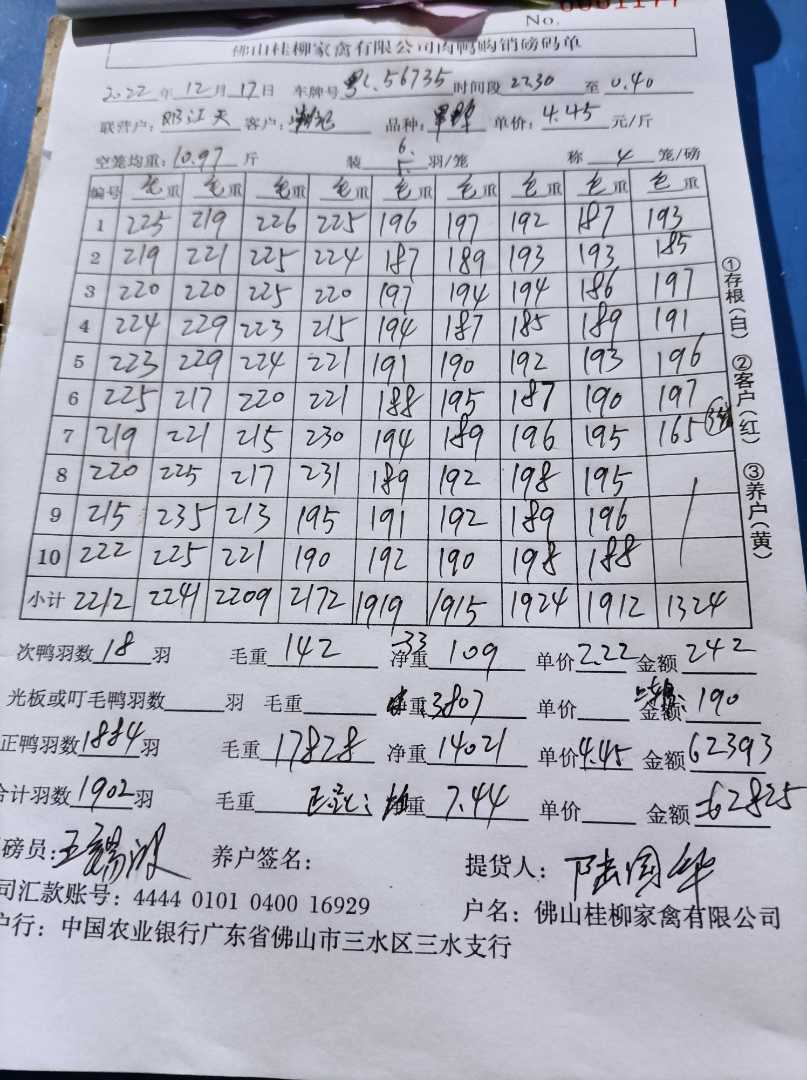 No. 0001177
佛山桂柳家禽有限公司肉鸭购销磅码单
2022年12月17日 车牌号粤C.56735时间段22.30至0.40
联营户:邓江天 客户: 品种: 单价:4.45元/斤
空笼均重:10.97斤 装6.5.羽/笼 称4笼/磅
编号 毛重 毛重 毛重 毛重 毛重 毛重 毛重 毛重 毛重
1 225 219 226 225 196 197 192 187 193
2 219 221 225 224 187 189 193 193 185
3 220 220 225 220 197 194 194 186 197
4 224 229 223 215 194 187 185 189 191
5 223 229 224 221 191 190 192 193 196
6 225 217 220 221 188 195 187 190 197
7 219 221 215 230 194 189 196 195 165
8 220 225 217 231 189 192 198 195
9 215 235 213 195 191 192 189 196
10 222 225 221 190 192 190 198 188
小计 2212 2241 2209 2172 1919 1915 1924 1912 1324
①存根(白) ②客户(红) ③养户(黄)
次鸭羽数18羽 毛重142 -33 净重109 单价2.22 金额242
光板或叮毛鸭羽数 羽 毛重 重3807 单价 金额190
正鸭羽数1884羽 毛重17828 净重14021 单价4.45 金额62393
合计羽数1902羽 毛重 重7.44 单价 金额62825
磅员:王锡波 养户签名: 提货人:陆国华
司汇款账号:4444 0101 0400 16929 户名:佛山桂柳家禽有限公司
户行:中国农业银行广东省佛山市三水区三水支行